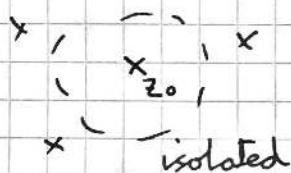 z₀
isolated